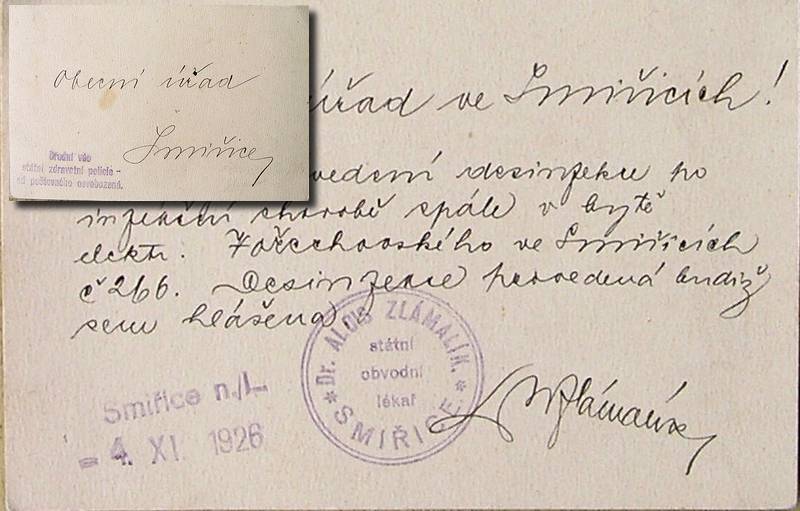 Obecní úřad
Smiřice
Úřední věc
státní zdravotní policie -
od poštovného osvobozená.
úřad ve Smiřicích!
vedení desinfekci po
infekční chorobě spále v bytě
elektr. Zořechovského ve Smiřicích
č 266. Desinfekce provedená budiž
sem hlášena.
Smiřice n./L.
- 4. XI. 1926
Dr. ALOIS ZLÁMALÍK.
státní
obvodní
lékař
SMIŘICE